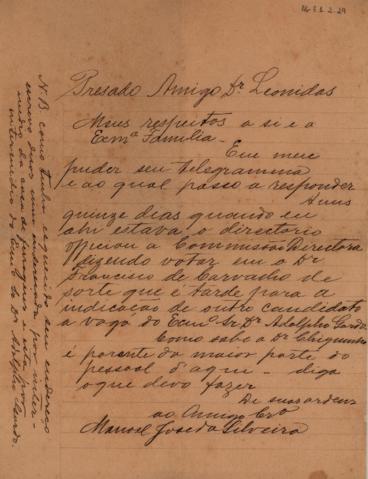 Presado Amigo Dr Leonidas
Meus respeitos a si e a
Ecmª Familia_
Em meu
puder seu telegramma
e ao qual passo a responder
A uns
quinze dias quando eu
ahi estava o directorio
opiciou a Commissão Directora
dizendo votar em o Dr
Francisco de Carvalho de
sorte que é tarde para a
indicação de outro candidato
a vaga do Ecmº Sr Dr Adolpho
Como sabe o Dr
é parente da maior parte do
pessoal d'aqui_ diga
o que devo fazer
De suas ordens
ao Amigo Crº
Manoel Jose da Silveira
N.B como tenha esquecido seu endereço
por inter-
medio da casa de
intermedio do Ecmº Sr Dr Adolpho